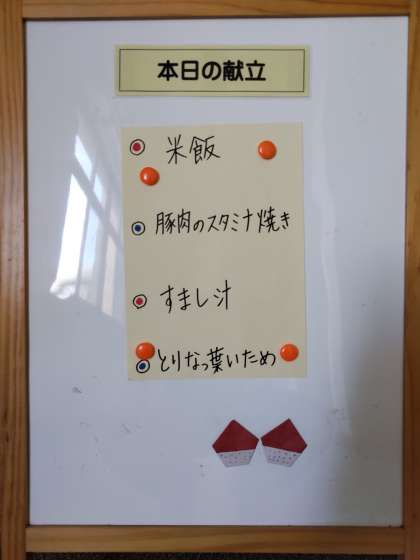 本日の献立
米飯
豚肉のスタミナ焼き
すまし汁
とりなっ葉いため